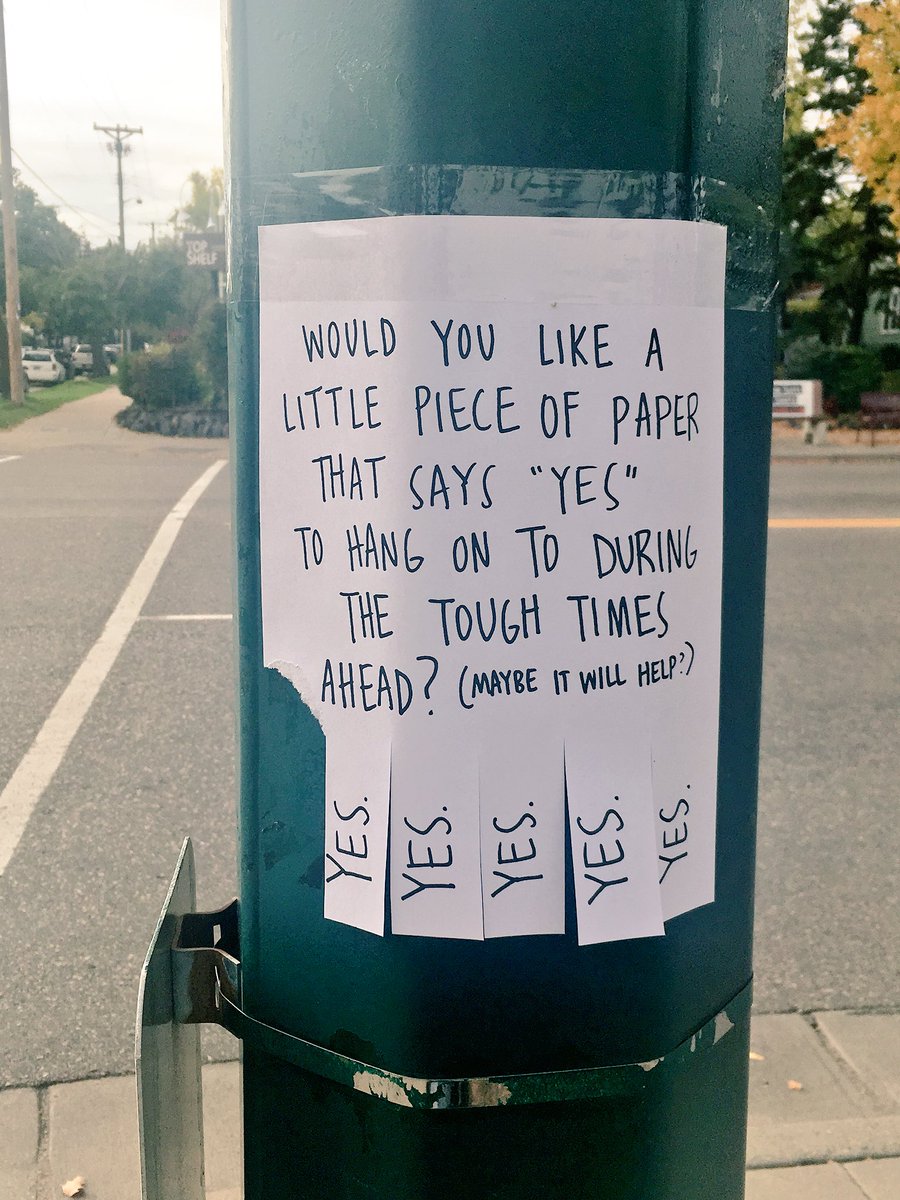 TOP
SHELF
WOULD YOU LIKE A
LITTLE PIECE OF PAPER
THAT SAYS "YES"
TO HANG ON TO DURING
THE TOUGH TIMES
AHEAD? (MAYBE IT WILL HELP?)
YES.
YES.
YES.
YES.
YES.